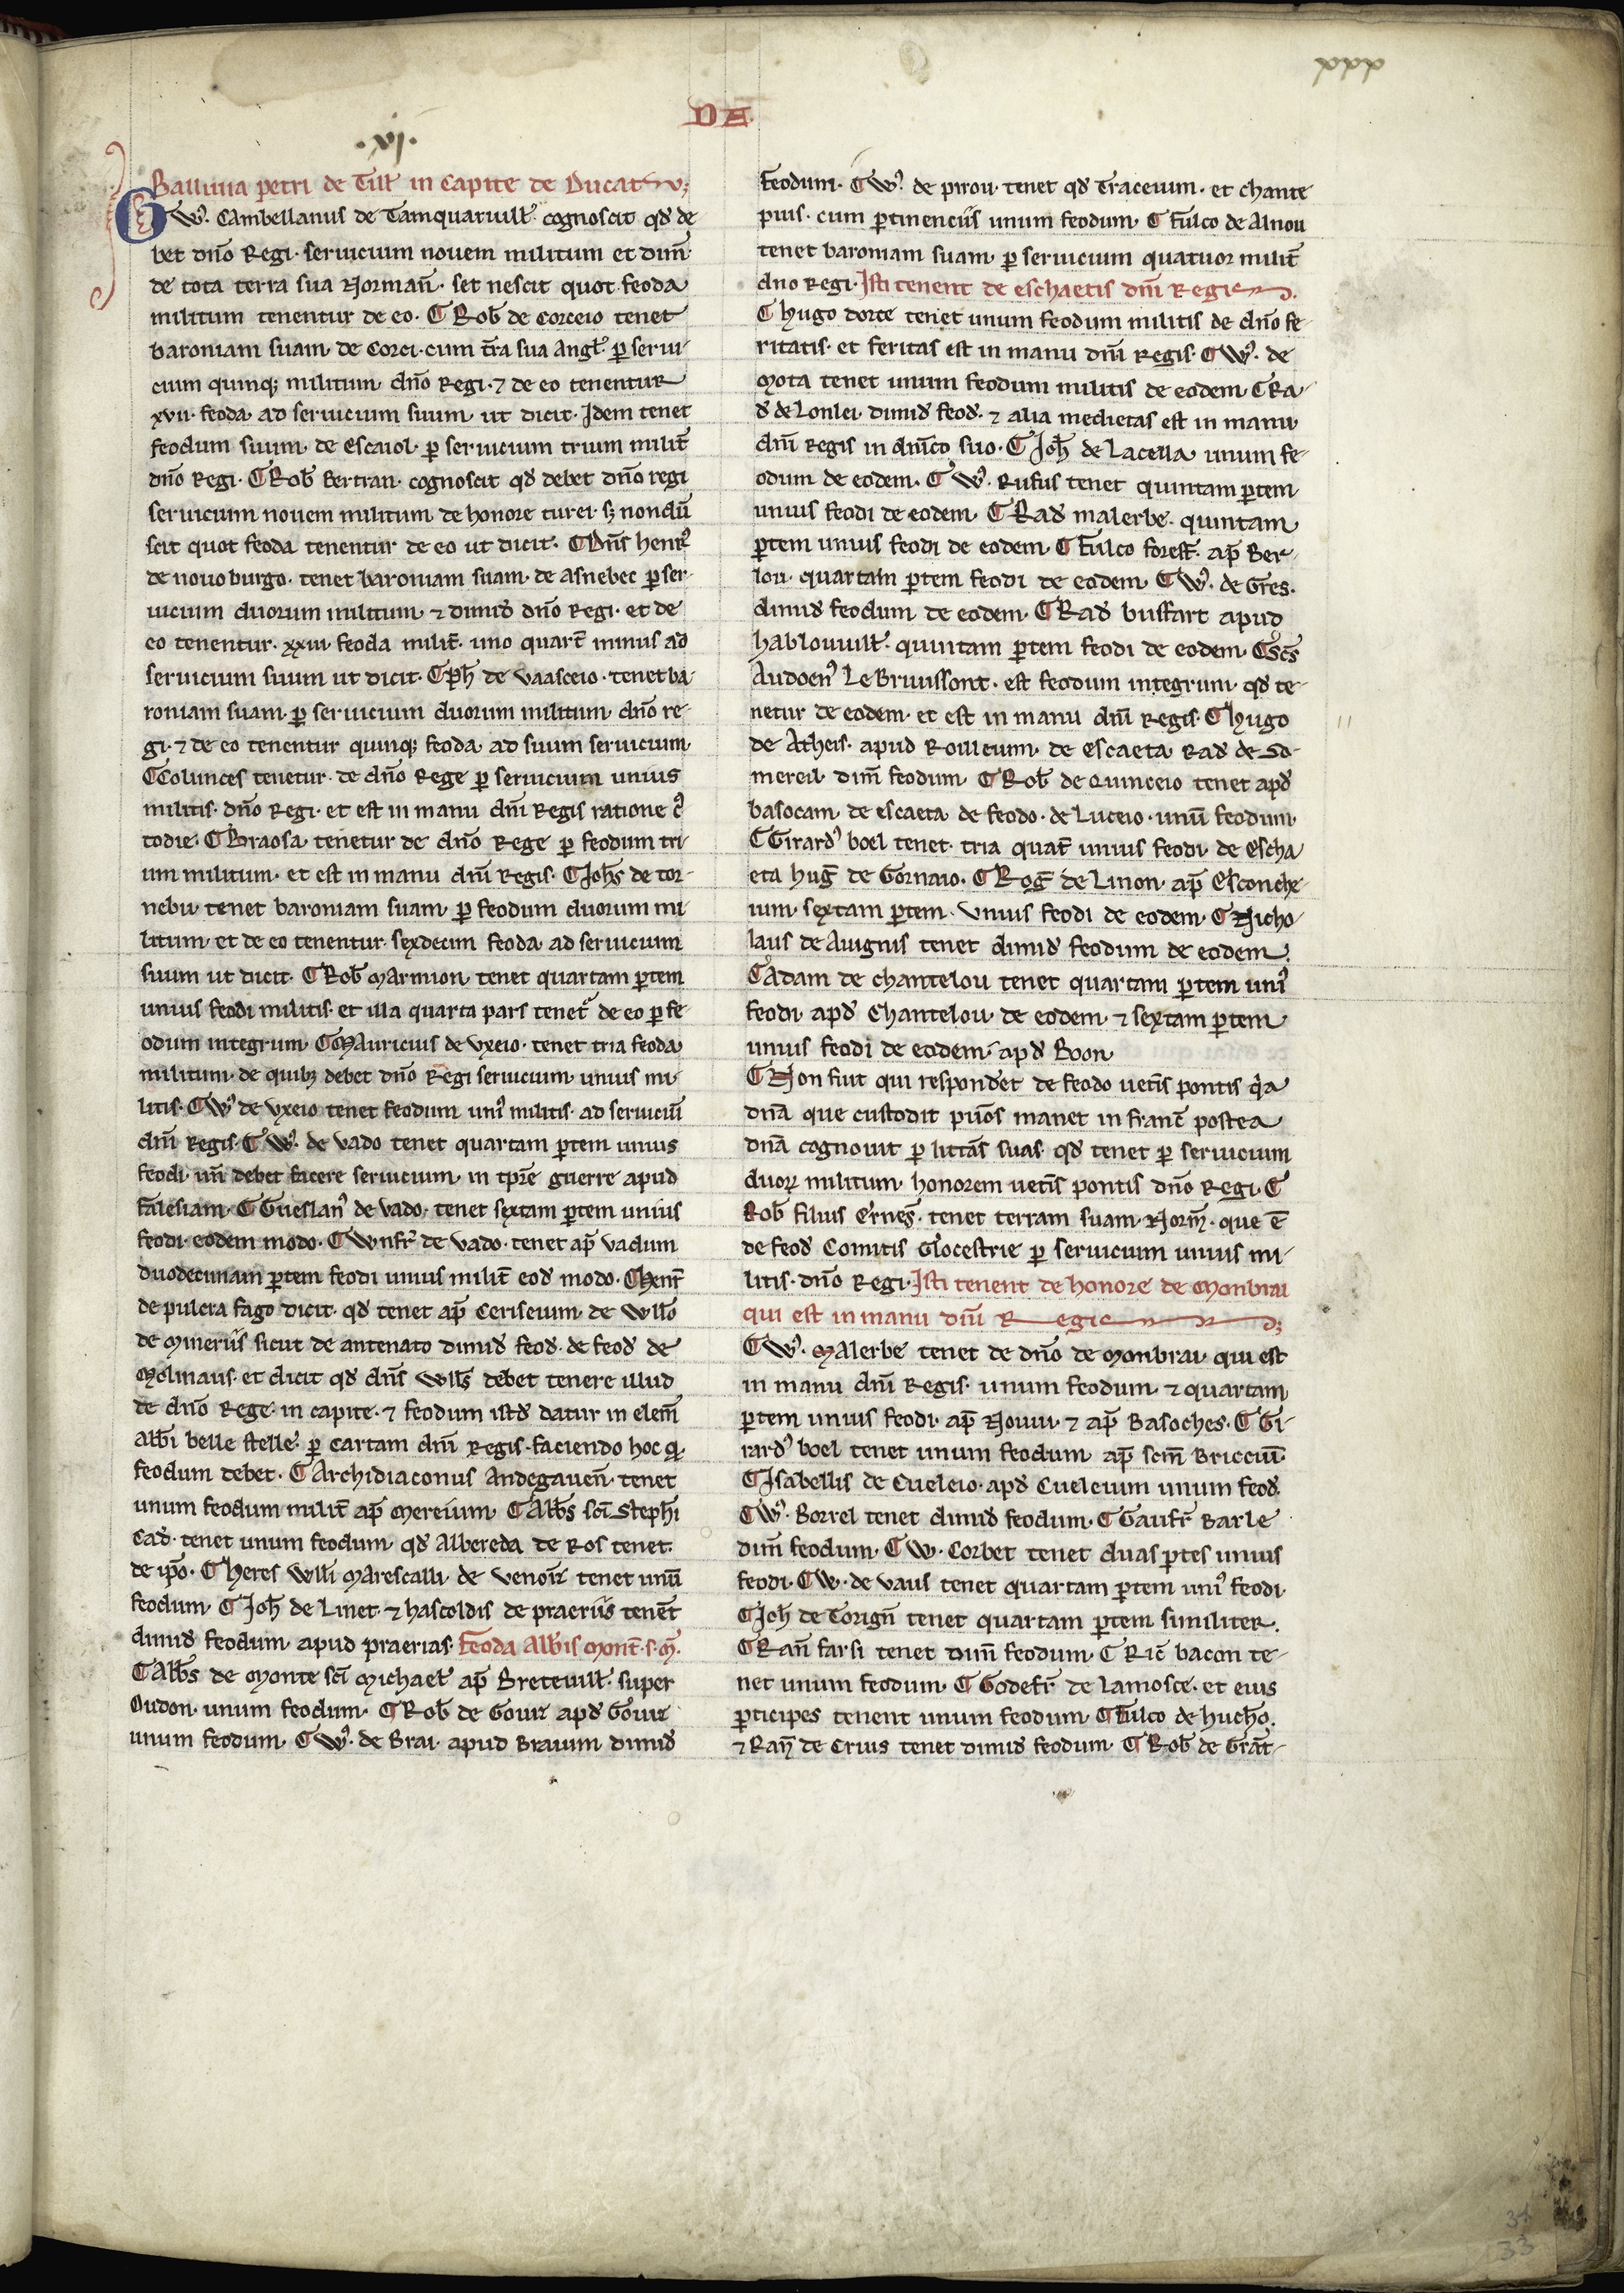 xxx
DA
.vj.
Balliuia petri de Till̃ in Capite de Ducatu;
W. Cambellanus de Tamquaruill̃. cognoscit qđ de
bet dño Regi. seruicium nouem militum et dim̃.
de tota terra sua Normañ. set nescit quot feoda
militum tenentur de eo. ¶ Rob̃ de Corceio tenet
baroniam suam de Corci. cum t̃ra sua Angl̃. ꝑ serui-
cium quinqꝫ militum dño Regi. ⁊ de eo tenentur
xvii. feoda ad seruicium suum ut dicit. Idem tenet
feodum suum de Escaiol. ꝑ seruicium trium milit̃
dño Regi. ¶ Rob̃ Bertran. cognoscit qđ debet dño regi
seruicium nouem militum de honore turei. sꝫ nondũ
scit quot feoda tenentur de eo ut dicit. ¶ Dñs henr̃
de nouo burgo. tenet baroniam suam de asnebec ꝑ ser-
uicium duorum militum ⁊ dimid̃ dño Regi. et de
eo tenentur. xxiii feoda milit̃. uno quart̃ minus ad
seruicium suum ut dicit. ¶ Ph̃ de vaasceio. tenet ba-
roniam suam ꝑ seruicium duorum militum dño re-
gi. ⁊ de eo tenentur quinqꝫ feoda ad suum seruicium
¶ Colunces tenetur de dño Rege ꝑ seruicium unius
militis. dño Regi. et est in manu dñi Regis ratione c9
todie. ¶ Braosa tenetur de dño Rege ꝑ feodum tri-
um militum. et est in manu dñi Regis. ¶ Joh̃s de tor-
nebu tenet baroniam suam ꝑ feodum duorum mi-
litum et de eo tenentur sexdecim feoda ad seruicium
suum ut dicit. ¶ Rob̃ Marmion tenet quartam ꝑtem
unius feodi militis. et illa quarta pars tenet̃ de eo ꝑ fe-
odum integrum ¶ Mauricius de vxeio. tenet tria feoda
militum. de quibꝫ debet dño Regi seruicium unius mi-
litis. ¶ W. de vxeio tenet feodum uni9 militis. ad seruiciũ
dñi Regis. ¶ W. de vado tenet quartam ꝑtem unius
feodi. uñ debet facere seruicium in tp̃re guerre apud
falesiam. ¶ Gueslan9 de vado. tenet sextam ꝑtem unius
feodi. eodem modo. ¶ Wnfr̃ de vado. tenet ap̃ vadum
duodecimam ꝑtem feodi unius milit̃ eod̃ modo. ¶ henr̃
de pulcra fago dicit. qđ tenet ap̃ Ceriseium. de Wll̃o
de Mineriis sicut de antenato dimid̃ feod̃. de feod̃ de
Molinaus. et dicit qđ dñs Wll̃s debet tenere illud
de dño Rege. in capite. ⁊ feodum istđ datur in elem̃
alb̃i belle stelle. ꝑ cartam dñi Regis. faciendo hoc q̃
feodum debet. ¶ Archidiaconus Andegaueñ. tenet
unum feodum milit̃ ap̃ Mereium. ¶ Alb̃s sc̃i Steph̃i
Cad̃. tenet unum feodum qđ Albereda de Ros tenet.
de ip̃o. ¶ heres Will̃i Marescalli de venoir̃ tenet unũ
feodum. ¶ Joh̃ de Linet. ⁊ hascoldis de praeriis tenẽt
dimid̃ feodum apud praerias. Feoda Alb̃is Mont̃. s. m̃.
¶ Alb̃s de Monte sc̃i Michael̃ ap̃ Breteuill̃. super
Oudon. unum feodum. ¶ Rob̃ de Gouir apđ Gouir
unum feodum. ¶ W. de Brai. apud Braium dimid̃
feodum. ¶ W. de pirou. tenet qđ Traceium. et chante
pius. cum ꝑtinenciis unum feodum. ¶ Fulco de Alnou
tenet baroniam suam ꝑ seruicium quatuor milit̃
dño Regi. Isti tenent de eschaetis dñi Regis.
¶ hugo dorte tenet unum feodum militis de dño fe-
ritatis. et feritas est in manu dñi Regis. ¶ W. de
Mota tenet unum feodum militis de eodem ¶ Ra-
d̃ de Lonlei. dimid̃ feod̃. ⁊ alia medietas est in manu
dñi Regis in dñico suo. ¶ Joh̃ de Lacella unum fe-
odum de eodem. ¶ W. Rufus tenet quintam ꝑtem
unius feodi de eodem ¶ Rad̃ malerbe. quintam
ꝑtem unius feodi de eodem. ¶ Fulco forest̃. ap̃ Ber-
lou. quartam ꝑtem feodi de eodem ¶ W. de Gres.
dimid̃ feodum de eodem. ¶ Rad̃ buffart apud
hablouuill̃. quintam ꝑtem feodi de eodem. ¶ Sc̃s
Audoen9 Le Bruissont. est feodum integrum. qđ te-
netur de eodem. et est in manu dñi Regis. ¶ hugo
de Atheis. apud Roilleium. de escaeta Rad̃ de So-
mereil dim̃ feodum. ¶ Rob̃ de Quinceio tenet apđ
basocam de escaeta de feodo. de Luceio. unũ feodum.
¶ Girard9 boel tenet. tria quat̃ unius feodi de escha
eta hug̃ de Gornaio. ¶ Rog̃ de Linon. ap̃ Esconche-
ium. sextam ꝑtem. vnius feodi de eodem. ¶ Nicho-
laus de Auignis tenet dimid̃ feodum de eodem.
¶ Adam de chantelou tenet quartam ꝑtem uni9
feodi. apđ Chantelou de eodem ⁊ sextam ꝑtem
unius feodi de eodem apđ Boon
¶ Non fuit qui responderet de feodo uet̃is pontis q̃a
dñã que custodit pũos manet in franc̃ postea
dñã cognouit ꝑ litt̃as suas. qđ tenet ꝑ seruicium
duoꝝ militum honorem uet̃is pontis dño Regi. ¶
Rob̃ filius Ernes̃. tenet terram suam Norm̃. que ẽ
de feod̃ Comitis Glocestrie ꝑ seruicium unius mi-
litis. dño Regi. Isti tenent de honore de Monbrai
qui est in manu dñi Regis
¶ W. Malerbe tenet de dño de Monbrai qui est
in manu dñi Regis. unum feodum ⁊ quartam
ꝑtem unius feodi. ap̃ Nouiu. ⁊ ap̃ Basoches. ¶ Gi-
rard9 boel tenet unum feodum ap̃ sc̃m Bricciũ.
¶ Isabellis de Cueleio. apđ Cueleium unum feod̃.
¶ W. Borrel tenet dimid̃ feodum. ¶ Gaufr̃ Barle
dim̃ feodum. ¶ W. Corbet tenet duas ꝑtes unius
feodi. ¶ W. de vaus tenet quartam ꝑtem uni9 feodi.
¶ Joh̃ de Torigñ tenet quartam ꝑtem similiter.
¶ Rañ farsi tenet dim̃ feodum. ¶ Ric̃ bacon te-
net unum feodum. ¶ Godefr̃ de lamosce. et eius
ꝑticipes tenent unum feodum. ¶ Fulco de hucho.
⁊ Rañ de Crius tenet dimid̃ feodum. ¶ Rob̃ de Grãt-
33